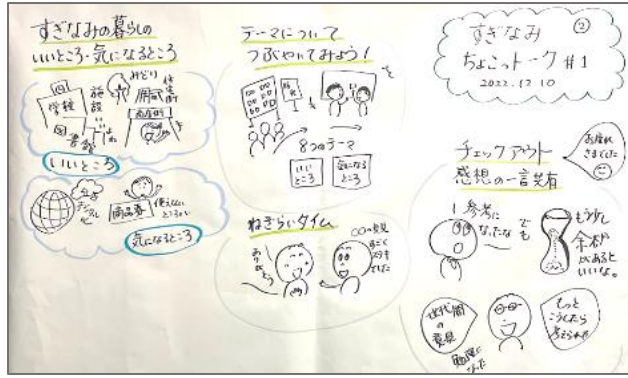 すぎなみの暮らしの
いいところ・気になるところ
学校
施設
みどり
図書館
いいところ
商品券
使えない
ところも
気になるところ
テーマについて
つぶやいてみよう!
8つのテーマ
いい
ところ
気になる
ところ
ねぎらいタイム
ありがとう
〇〇の意見
すごく
ステキ
でした
②
すぎなみ
ちょこっトーク #1
2022.12.10
チェックアウト
感想の一言共有
お疲れ
さまでした
参考に
なったな
でも
もう少し
余裕
があると
いいな。
世代間
の
意見
勉強に
なった
もっと
こうしたら